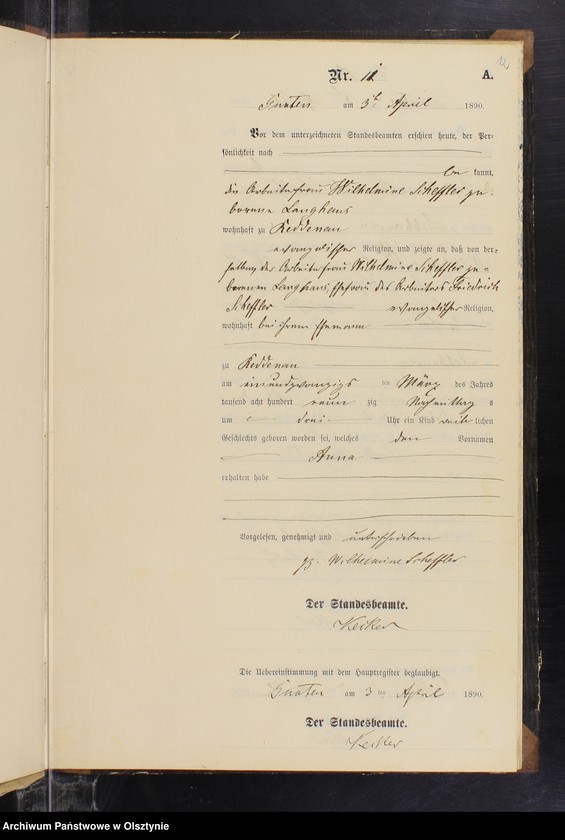 12
Nr. 12 A.
Guttten am 3t April 1890.
Vor dem unterzeichneten Standesbeamten erschien heute, der Per-
sönlichkeit nach
be kannt,
die Arbeiterfrau Wilhelmine Scheffler ge-
borene Langhans
wohnhaft zu Reddenau
evangelischer Religion, und zeigte an, daß von der-
selben der Arbeiterfrau Wilhelmine Scheffler ge-
borenen Langhans, Ehefrau des Arbeiters Friedrich
Scheffler evangelischer Religion,
wohnhaft bei ihrem Ehemann
zu Reddenau
am einundzwanzigs ten März des Jahres
tausend acht hundert neun zig Nachmittag s
um drei Uhr ein Kind weib lichen
Geschlechts geboren worden sei, welches den Vornamen
Anna
erhalten habe
Vorgelesen, genehmigt und unterschrieben
gz. Wilhelmine Scheffler
Der Standesbeamte.
Die Uebereinstimmung mit dem Hauptregister beglaubigt.
am 3 ten April 1890.
Der Standesbeamte.
Archiwum Państwowe w Olsztynie